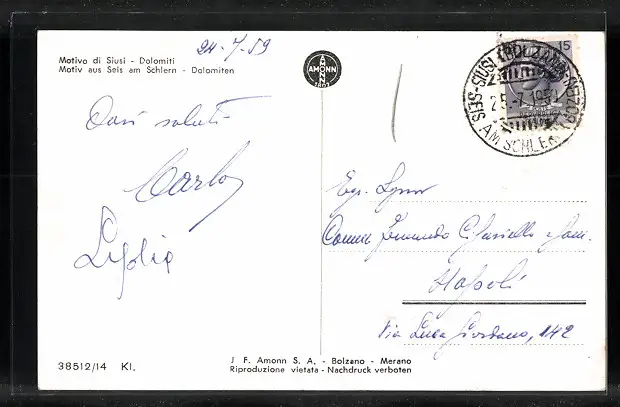 24-7/59
Motivo di Siusi - Dolomiti
Motiv aus Seis am Schlern - Dolomiten
AMONN
15
SEIS-SIUSI
25.-7.1959
AM SCHLERN
Cari saluti-
Carlo
Lydia
Egr. Sgnr
Comm. Fernando & fam.
Napoli
Via Luca Giordano, 142
38512/14 Kl.
J. F. Amonn S. A. - Bolzano - Merano
Riproduzione vietata - Nachdruck verboten